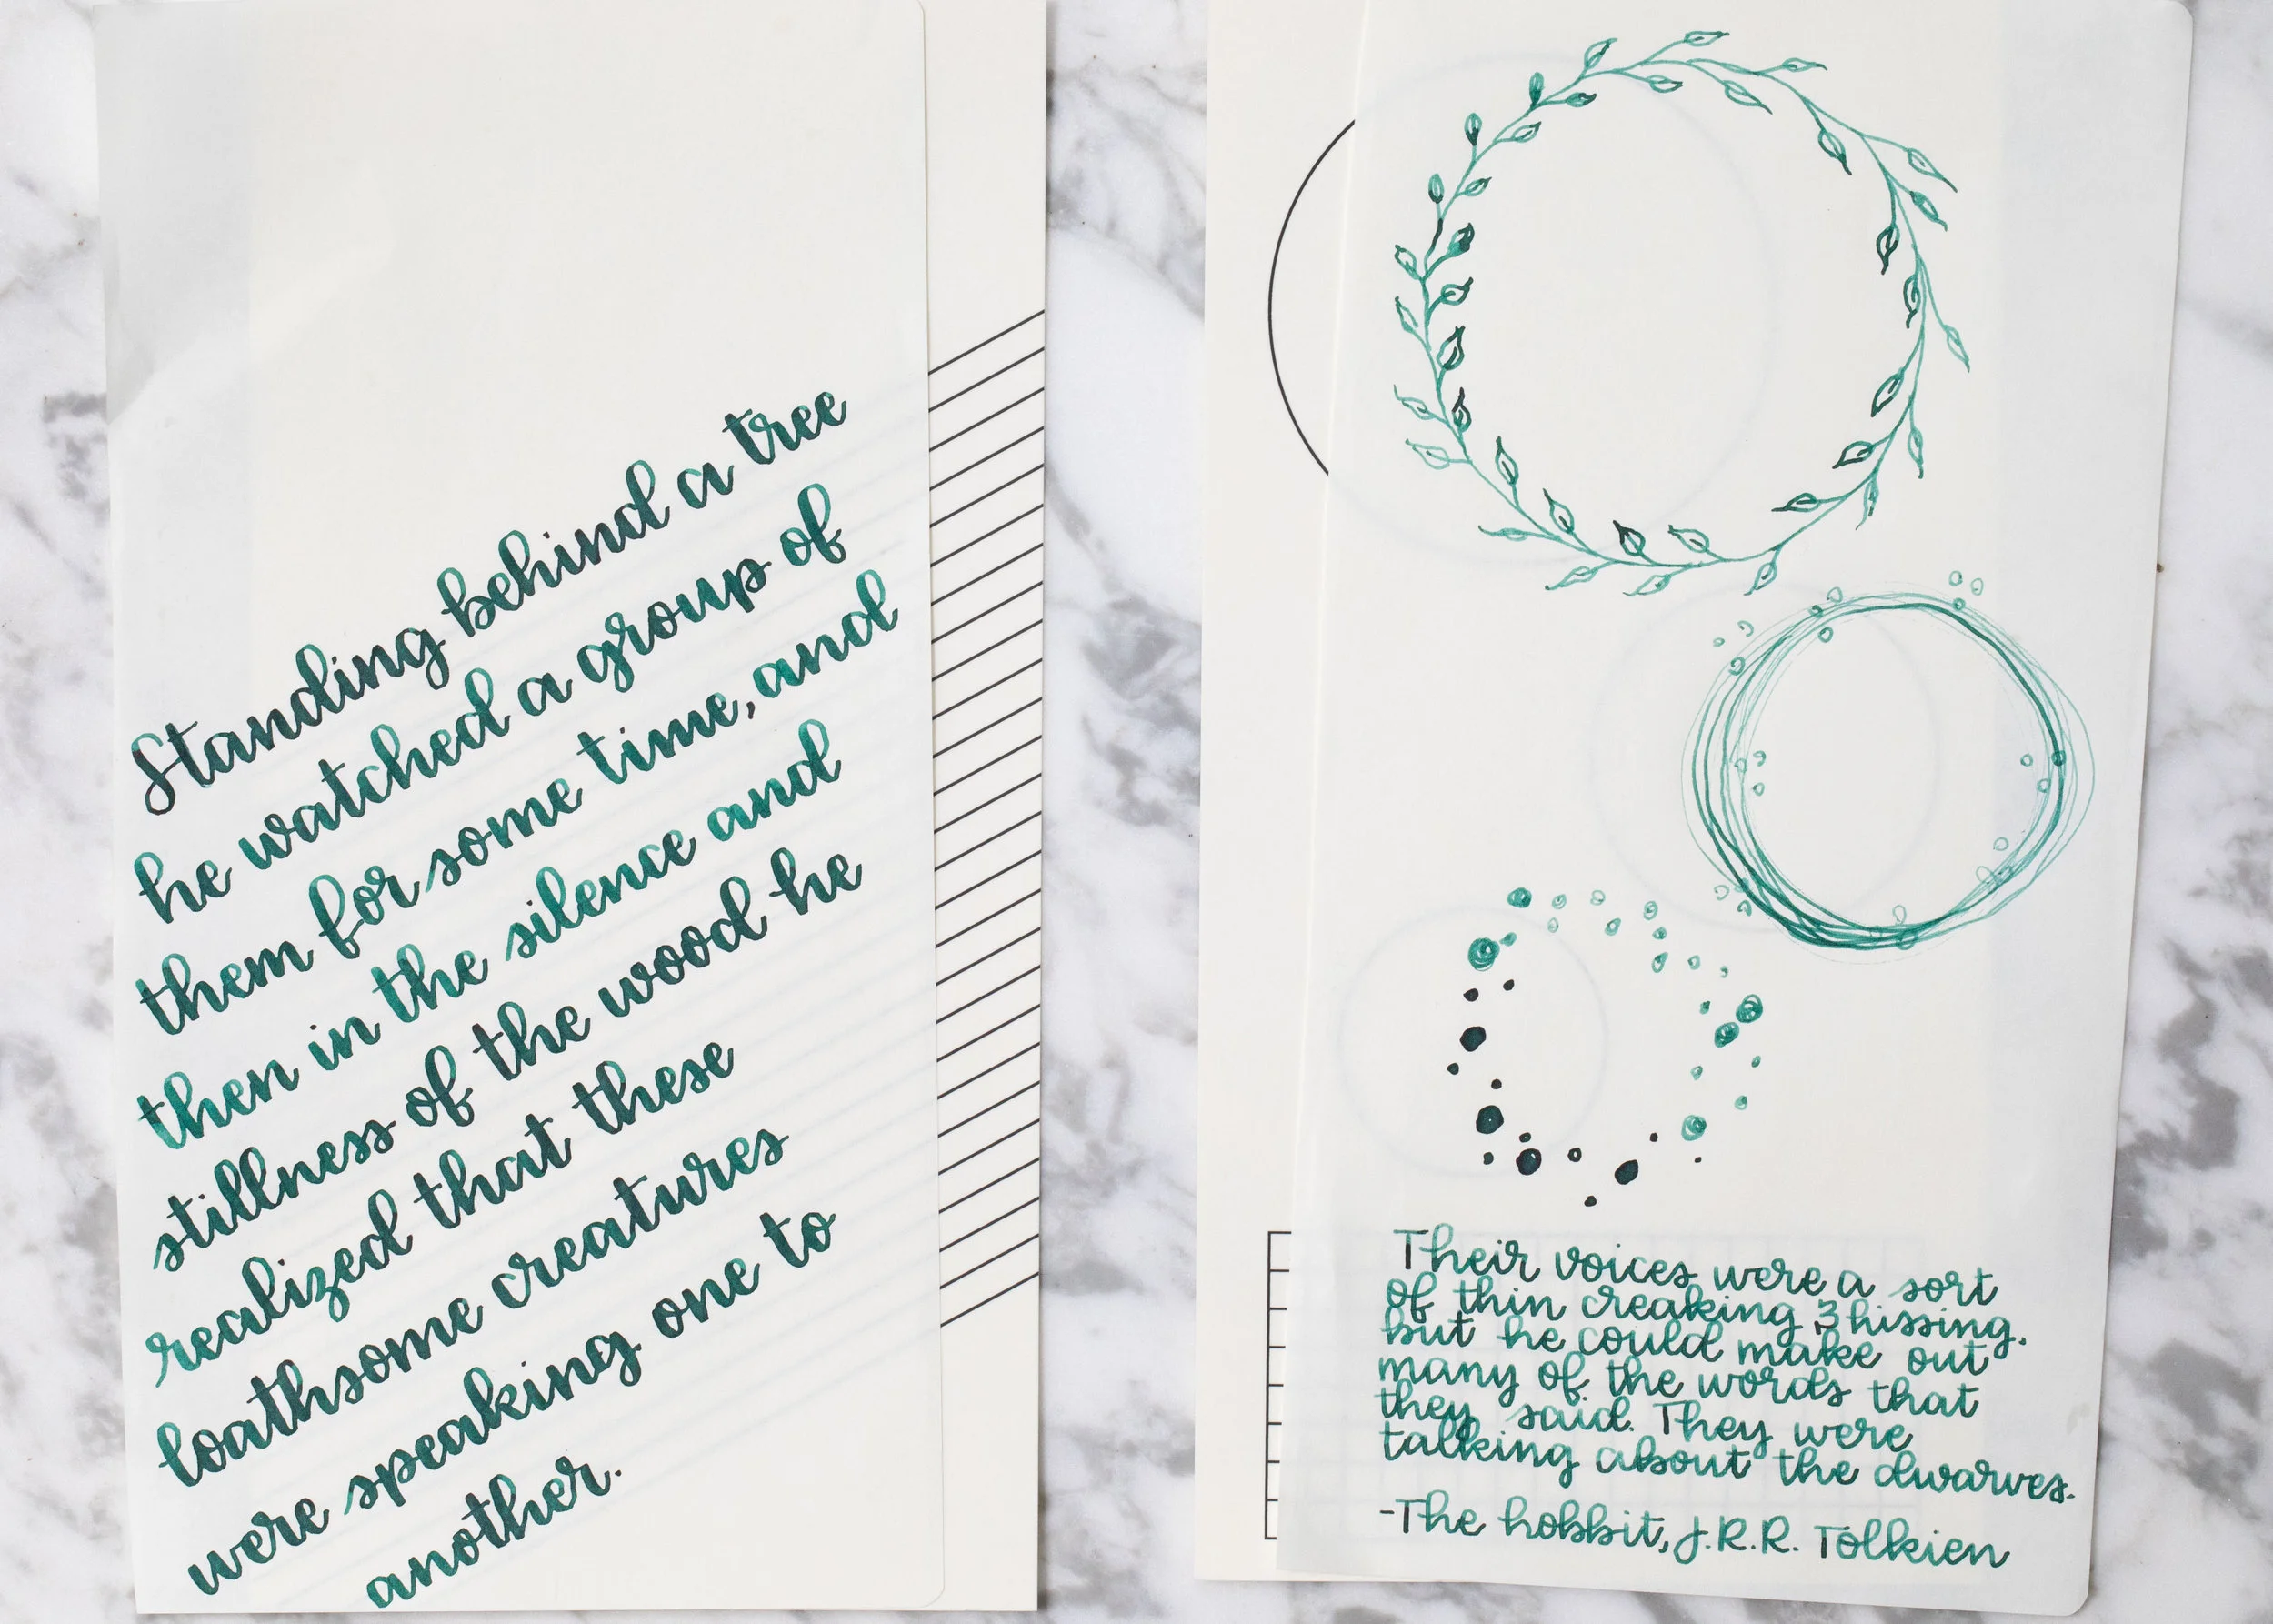 Standing behind a tree
he watched a group of
them for some time, and
then in the silence and
stillness of the wood he
realized that these
loathsome creatures
were speaking one to
another.
Their voices were a sort
of thin creaking & hissing.
but he could make out
many of the words that
they said. They were
talking about the dwarves.
-The hobbit, J.R.R. Tolkien